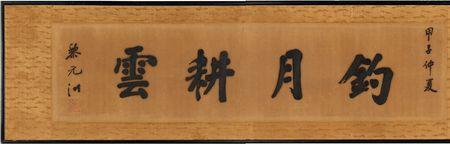 甲子仲夏
釣月耕雲
黎元洪